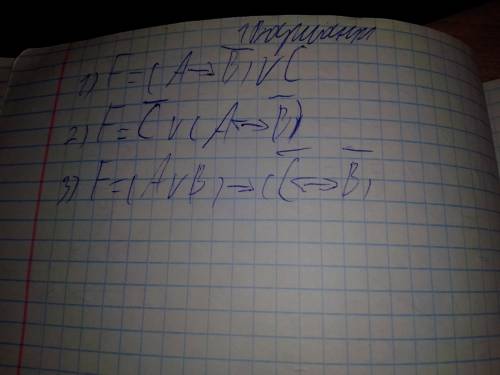 1 Вариант
1) F=(A→B̅)VC
2) F=C̅V(A↔B̅)
3) F=(AVB)→(C̅↔B̅)